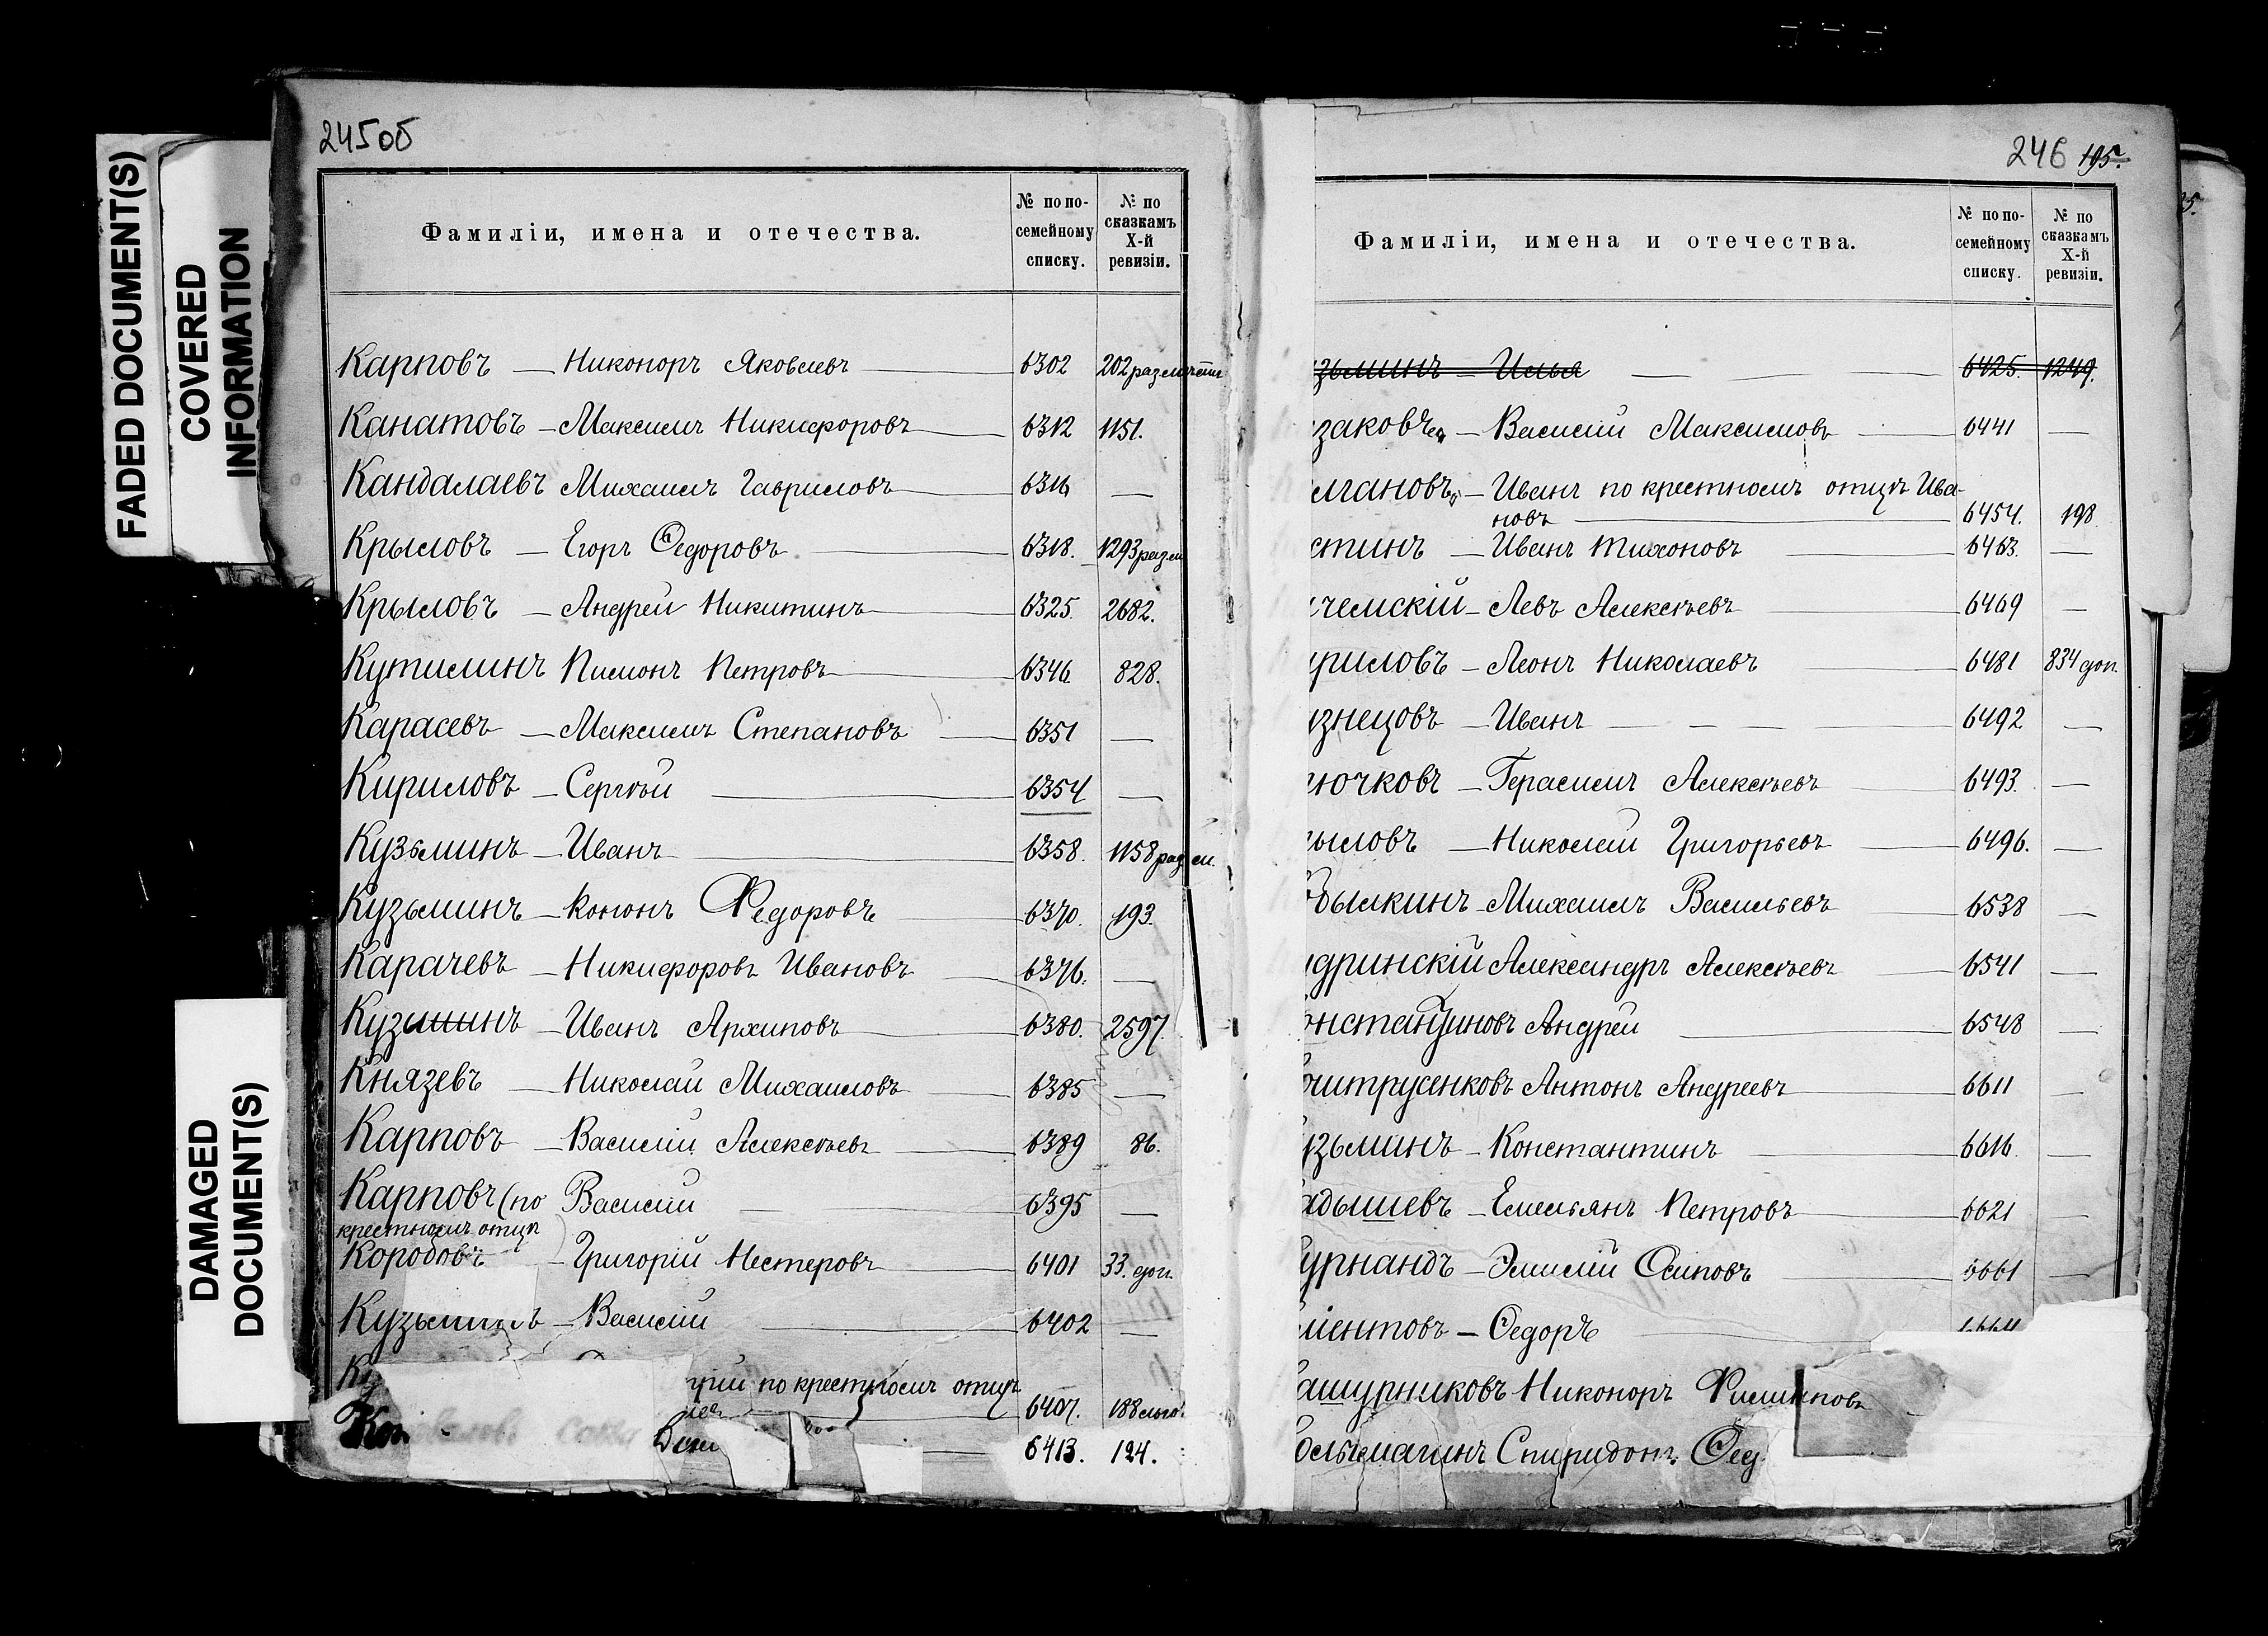 FADED DOCUMENT(S)
COVERED
INFORMATION
DAMAGED
DOCUMENT(S)
245 об
Фамиліи, имена и отечества. № по по-семейному списку. № по сказкамъ X-й ревизіи.
Карповъ — Никоноръ Яковлевъ — 6302 202
Канатовъ — Максимъ Никифоровъ — 6312 1151.
Кандалаевъ Михаилъ Гавриловъ — 6316 —
Крыловъ — Егоръ Ѳедоровъ — 6318. 1293
Крыловъ — Андрей Никитинъ — 6325. 2682.
Кутилинъ Пимонъ Петровъ — 6346 828.
Карасевъ — Максимъ Степановъ — 6351 —
Кириловъ — Сергѣй — 6354 —
Кузьминъ — Иванъ — 6358. 1158
Кузьминъ — Кононъ Федоровъ — 6370. 193.
Карачевъ — Никифоровъ Ивановъ — 6376. —
Кузминъ — Иванъ Архиповъ — 6380. 2597.
Князевъ — Николай Михаиловъ — 6385 —
Карповъ — Василій Алексѣевъ — 6389 86.
Карповъ (по Василій — 6395 —
крестномъ отцѣ)
Коробовъ — Григорій Нестеровъ — 6401 33. доп.
Кузьминъ — Василій — 6402 —
по крестномъ отцѣ
6407. 188
6413. 124.
246 195.
Фамиліи, имена и отечества. № по по-семейному списку. № по сказкамъ X-й ревизіи.
зьминъ — Илья — 6425. 1249.
заковъ — Василій Максимовъ — 6441 —
лгановъ — Иванъ по крестномъ отцѣ Ива-
новъ — 6454. 198
стинъ — Иванъ Тихоновъ — 6463. —
чемскій — Левъ Алексѣевъ — 6469 —
риловъ — Леонъ Николаевъ — 6481 834 доп.
знецовъ — Иванъ — 6492 —
лючковъ — Герасимъ Алексѣевъ — 6493. —
рыловъ — Николай Григорьевъ — 6496. —
обылкинъ — Михаилъ Васильевъ — 6538 —
дринскій Александръ Алексѣевъ — 6541 —
онстантиновъ Андрей — 6548 —
Антонъ Андреевъ — 6611 —
узьминъ — Константинъ — 6616. —
адышевъ — Емельянъ Петровъ — 6621 —
урнандъ — Эмилій Осиповъ — 6661 —
ментовъ — Ѳедоръ —
ашурниковъ Никоноръ Филиповъ
Спиридонъ Ѳед.